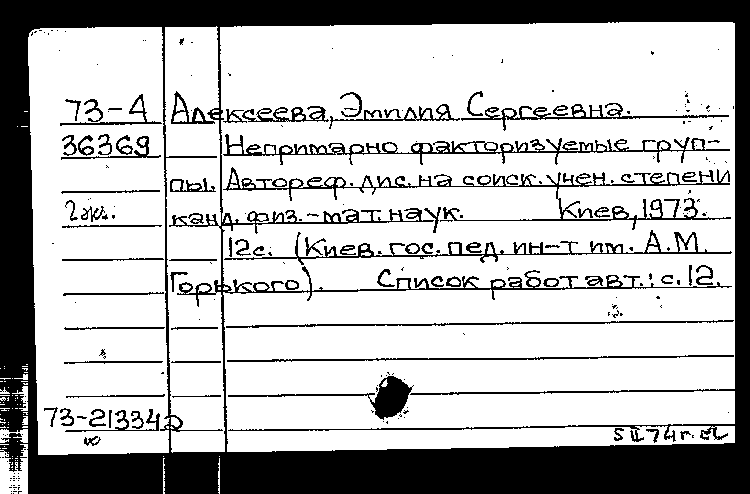 73-4 Алексеева, Эмилия Сергеевна.
36369 Непримарно факторизуемые груп-
пы. Автореф. дис. на соиск. учен. степени
2 экз. канд. физ.-мат. наук. Киев, 1973.
12с. (Киев. гос. пед. ин-т им. А.М.
Горького). Список работ авт.: с.12.
73-21334